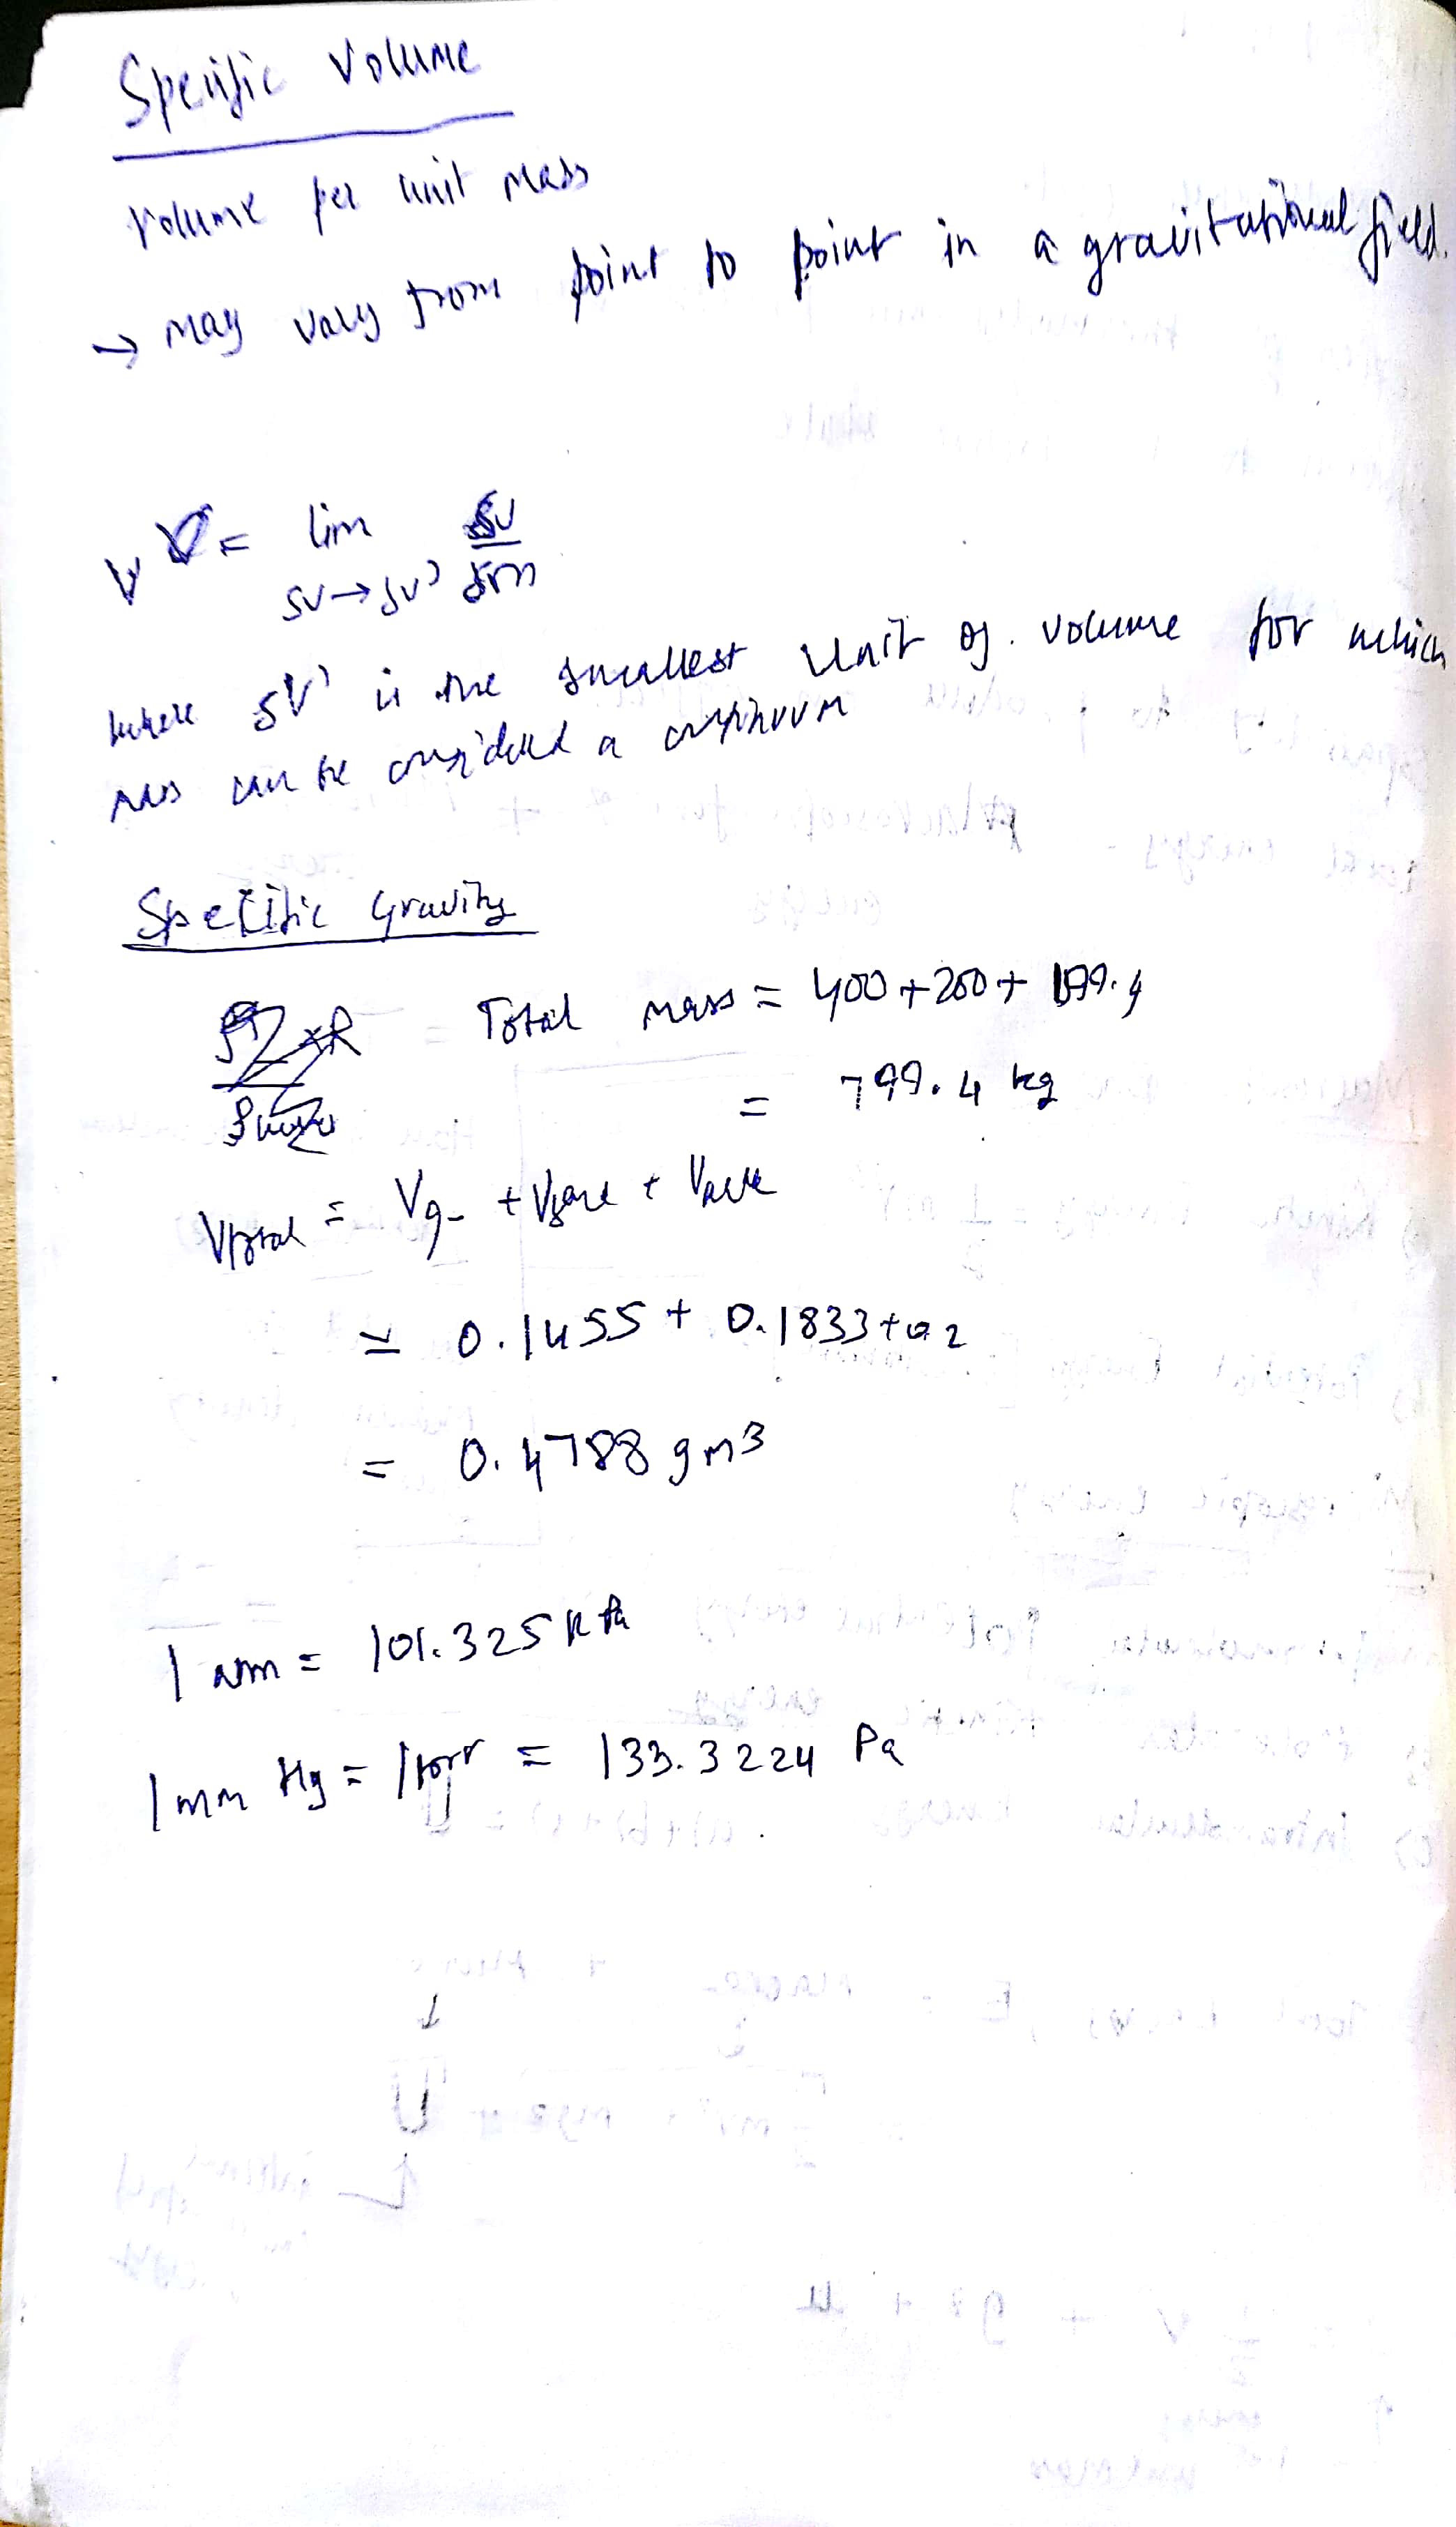 Specific Volume
Volume per unit mass
→ may vary from point to point in a gravitational field.
V = lim δV
δV→δV' δm
where δV' is the smallest Unit of. volume for which
mass can be considered a continuum
Specific Gravity
Total mass = 400 + 200 + 199.4
= 799.4 kg
Vtotal = Vg- + V + V
= 0.1455 + 0.1833 + 0.2
= 0.4788 gm3
1 atm = 101.325 KPa
1 mm Hg = 1 torr = 133.3224 Pa